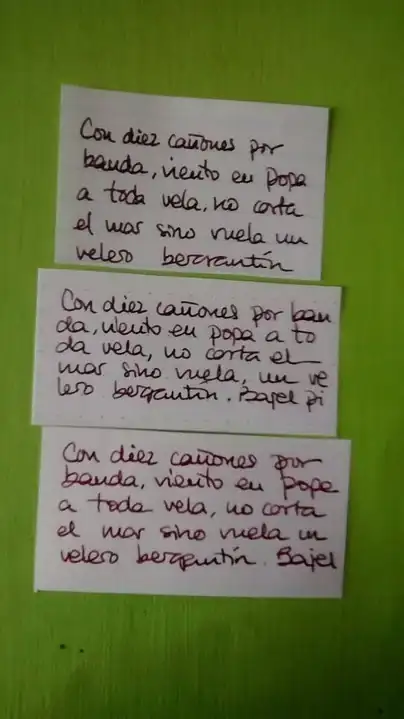 Con diez cañones por
banda, viento en popa
a toda vela, no corta
el mar sino vuela un
velero bergantín
Con diez cañones por ban
da, viento en popa a to
da vela, no corta el
mar sino vuela, un ve
lero bergantín. Bajel pi
Con diez cañones por
banda, viento en popa
a toda vela, no corta
el mar sino vuela un
velero bergantín. Bajel